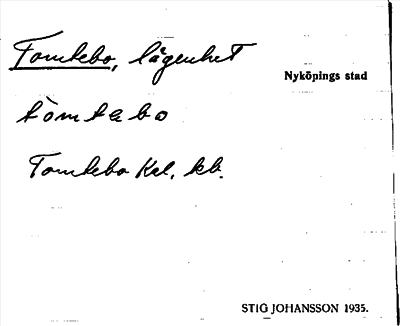 Tomtebo, lägenhet
Nyköpings stad
tòmtebo
Tomtebo Kal. kb.
STIG JOHANSSON 1935.